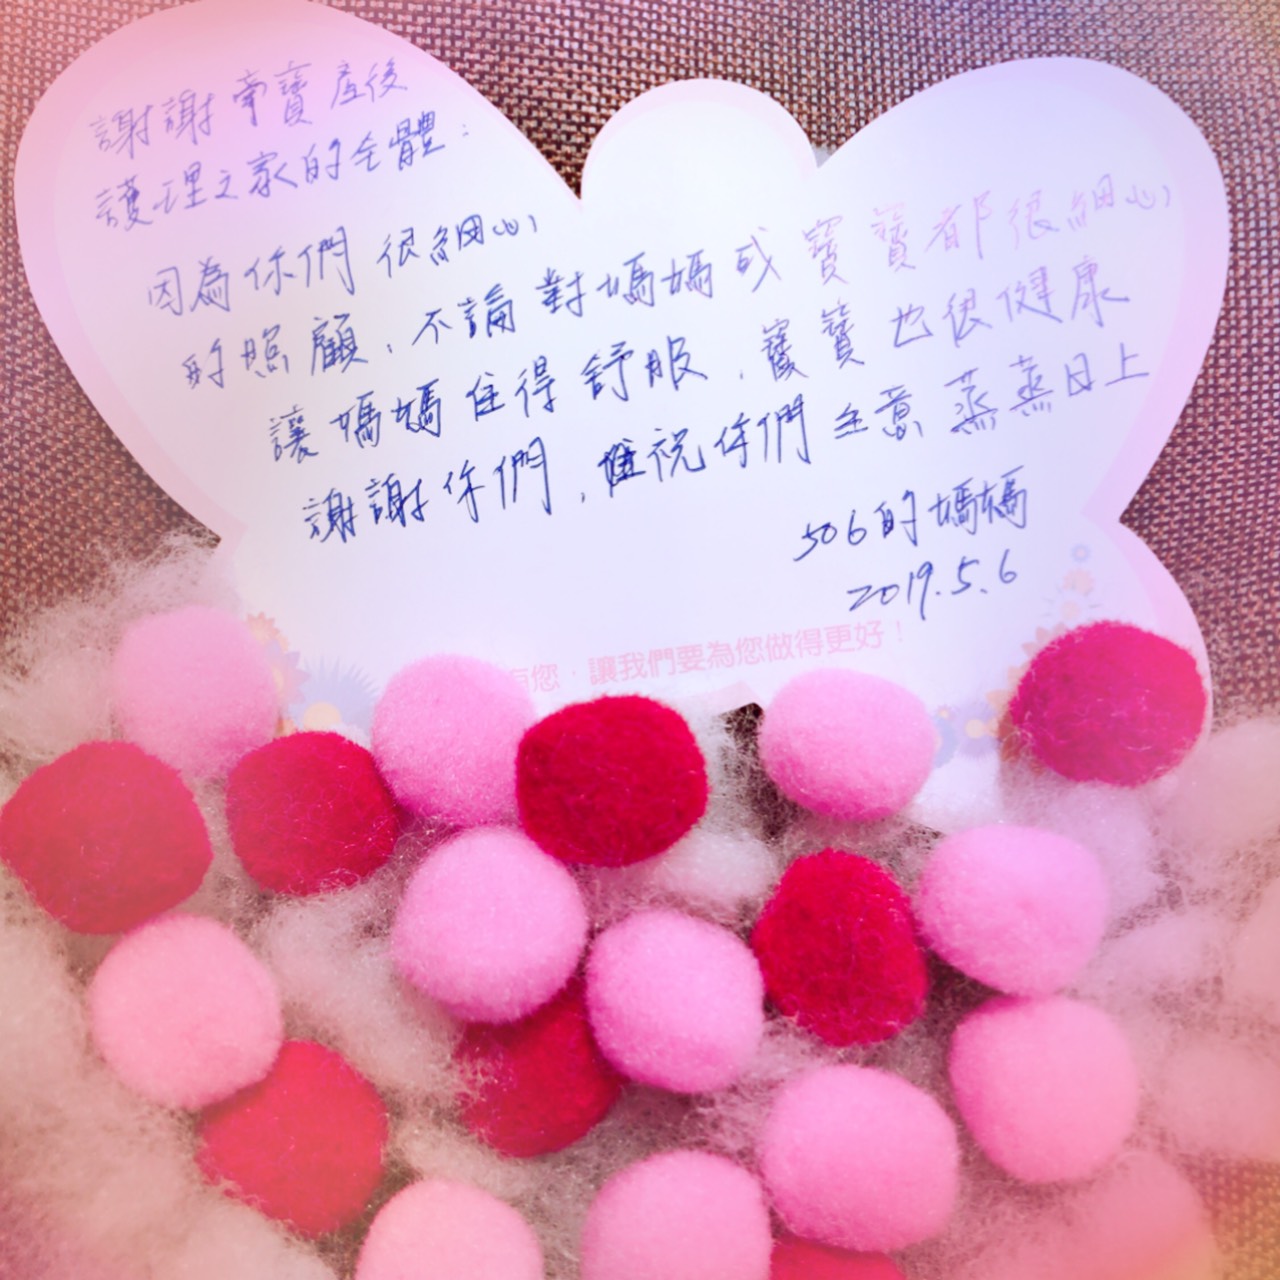 謝謝牽寶產後
護理之家的全體:
因為你們很細心
的照顧、不論對媽媽或寶寶都很細心
讓媽媽住得舒服、寶寶也很健康
謝謝你們,祝你們生意蒸蒸日上
506的媽媽
2019.5.6
有您,讓我們要為您做得更好!